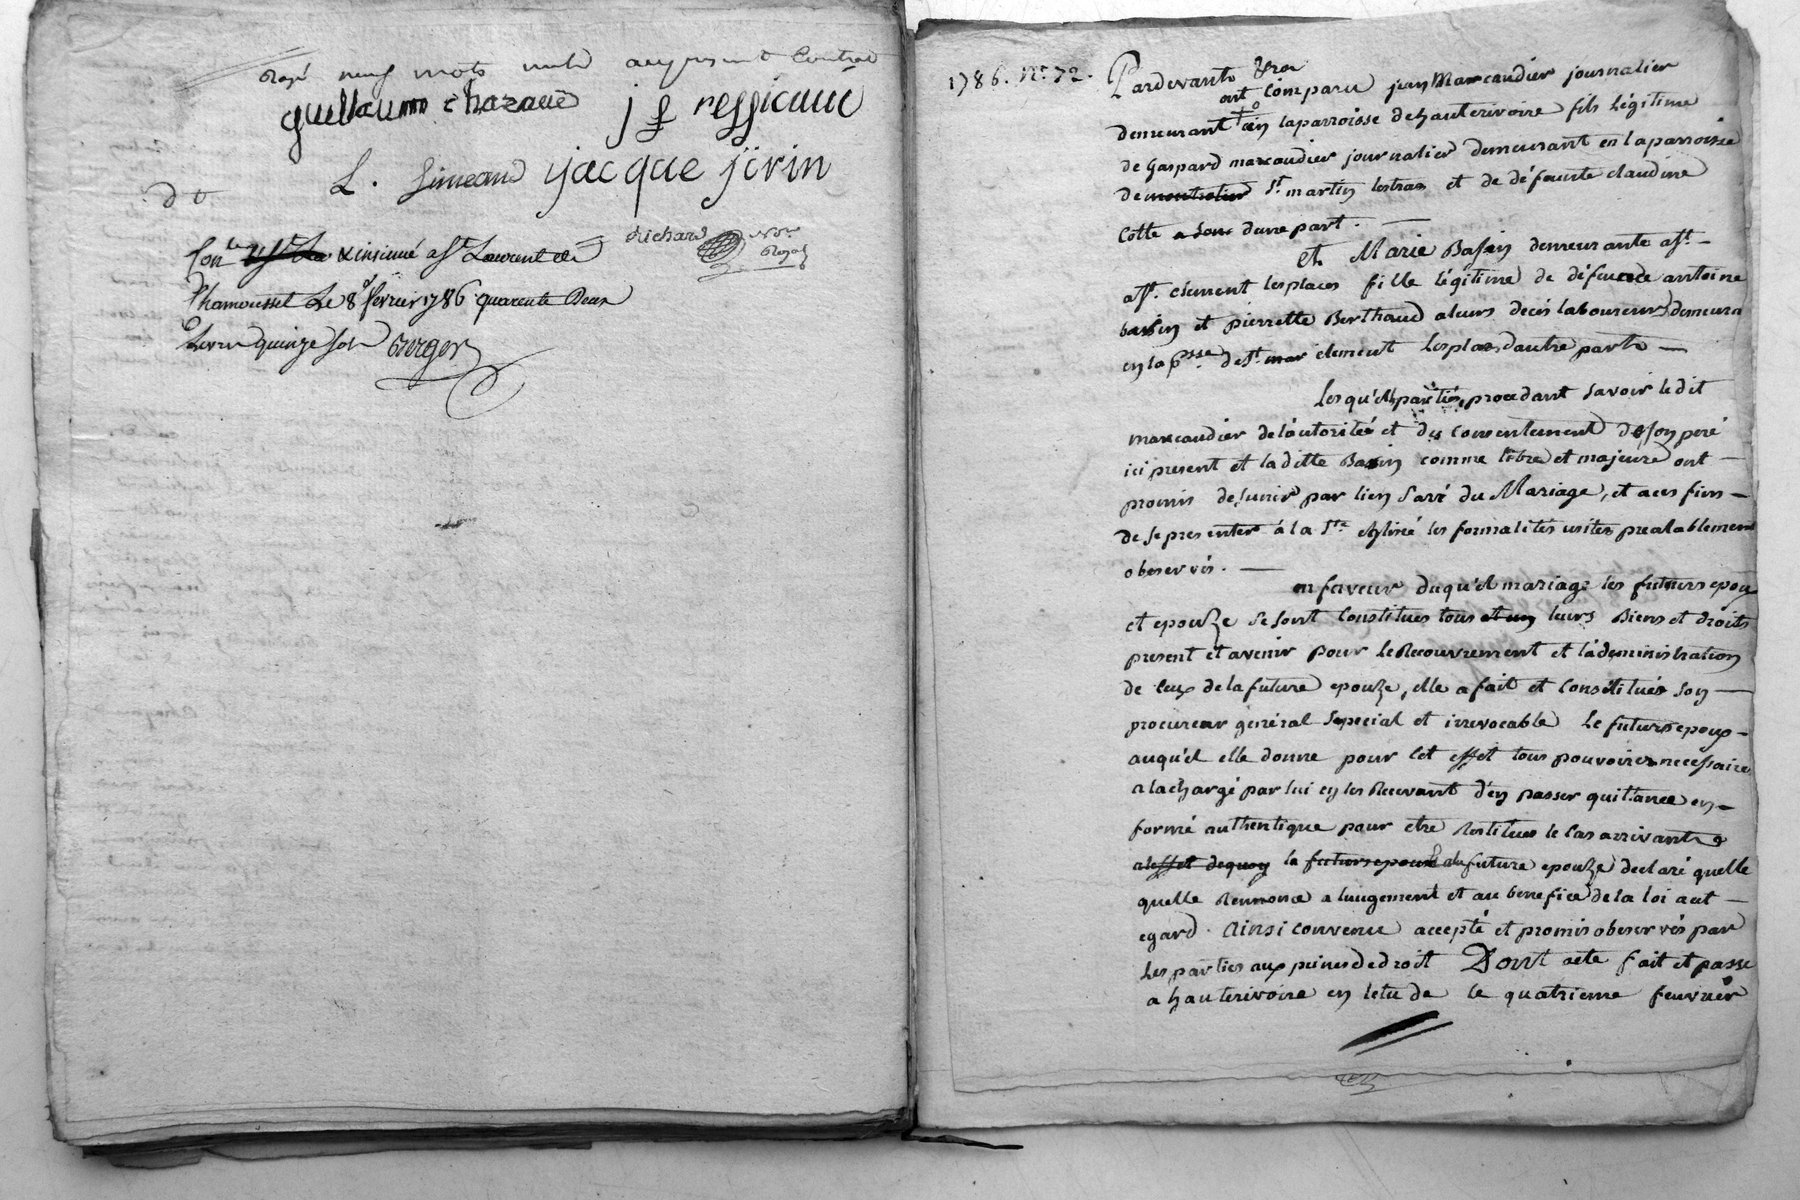 rayé neuf mots nuls au present Contrat
guellaum chazaud j f ressicaud
L. Simeand jacque jirin
do
richard
Royal
Con insinué a St Laurent de
Chamousset Le 8 fevrier 1786 quarente Deux
Livres quinze sols Berger
1786. No 72.
Pardevant
ont Comparu jean Marcaudier journalier
demeurant en laparroisse dehauterivoire fils légitime
de Gaspard marcaudier journalier demeurant en laparroisse
de montrotier St martin lestras et de défeunte claudine
Cotte a Son dune part. —
et Marie Basin demeurante a St —
a St. clement lesplaces fille légitime de défeunct antoine
basin et pierrette Berthaud aleurs decès laboureurs demeura
en la psse de St mar clement Lesplaces dautre part —
Lesqu'elles parties, procedant Savoir ledit
marcaudier delautorité et du consentement de son peré
ici present et laditte Basin comme libre et majeure ont —
promis desunir par lien Sacré du Mariage, et aces fins —
de se presenter à la Ste église les formalités usités prealablement
observés. —
en faveur duqu'el mariage les futurs epou
et epouze se sont Constitues tous et un leurs Biens et droits
present et avenir pour le Recouvrement et l'administration
de Ceux de la future epouze, elle a fait et Constitués son —
procureur general Special et irrevocable Le futurs epoux —
auqu'el elle donne pour Cet effet tous pouvoires necessaire
a lachargé par lui en les Recevant d'en passer quittance en —
formé authentique pour etre Restitues le Cas arrivant
a leffet dequoy la futurs epoux la future epouze declaré quelle
quelle Rennonce a laugement et au benefice de la loi acet —
egard. Ainsi convenu accepté et promis observés par
Les parties aux peines de droit Dont acte fait et passe
a hauterivoire en letude le quatrieme feuvrier